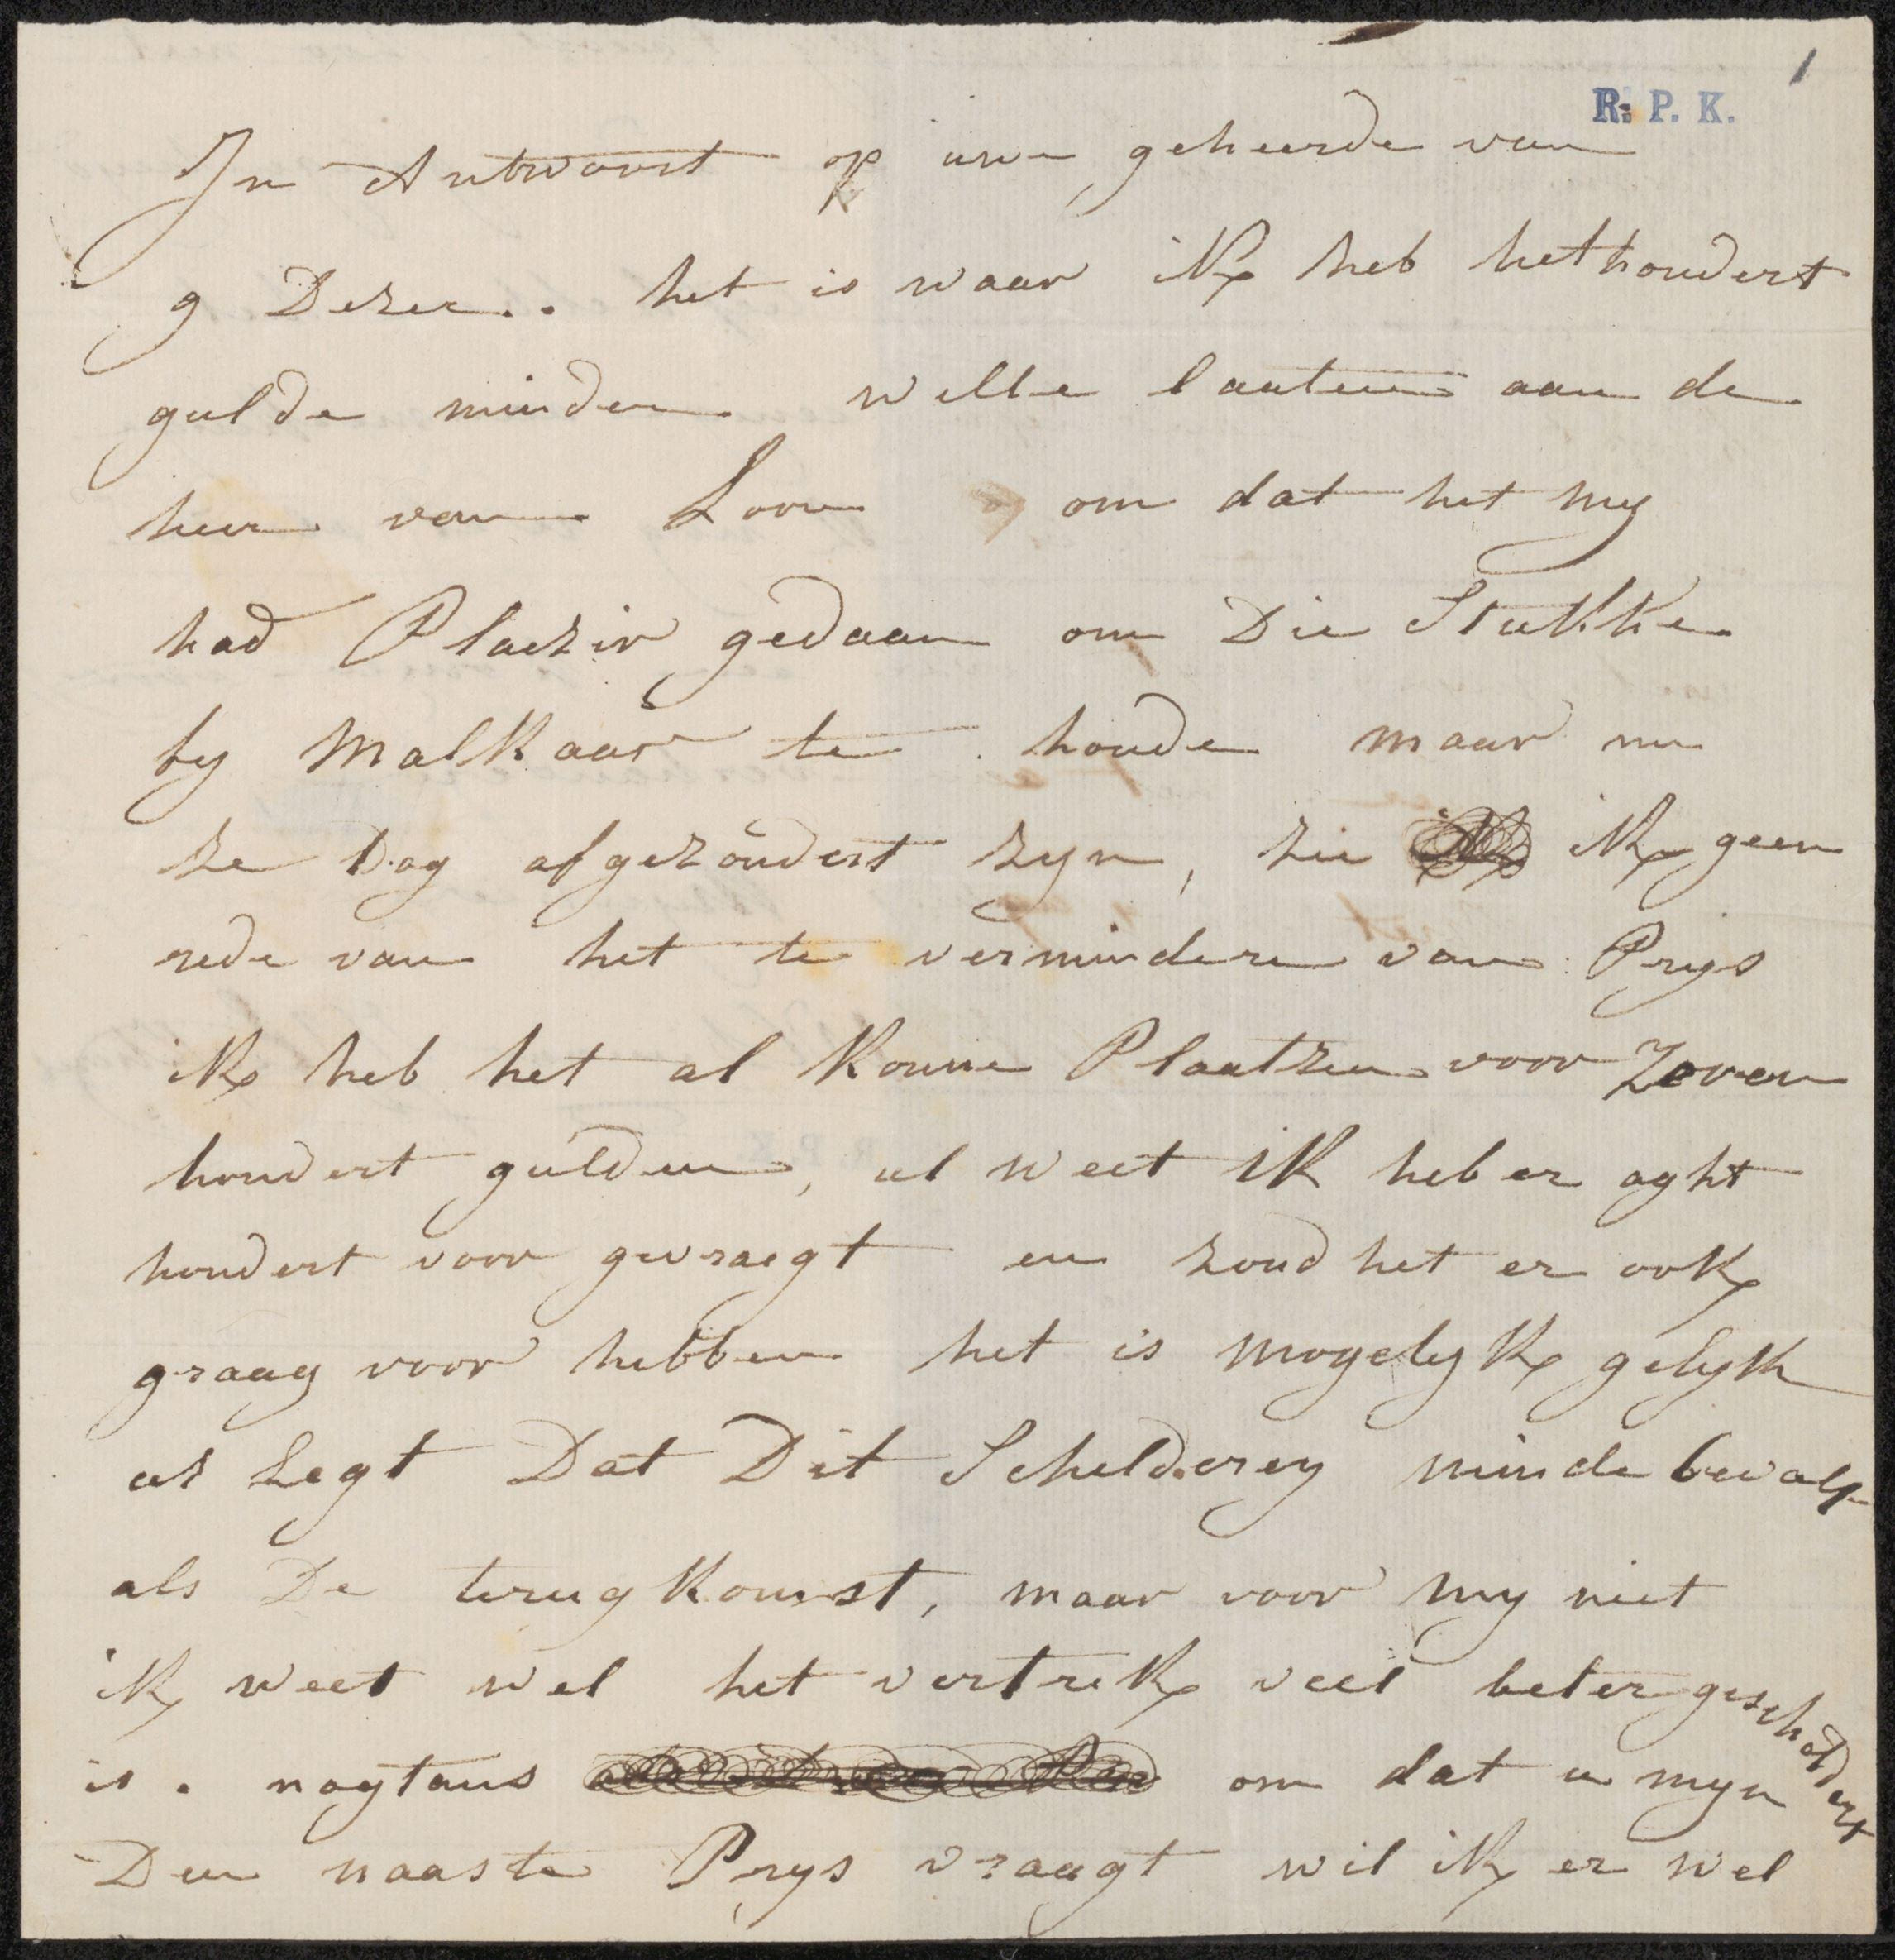 1
R. P. K.
In Antwoort op uwe geheerde van
9 Dezer.. het is waar ik heb het hondert
gulde minder wille laaten aan de
heer van Loon om dat het my
had Plaezir gedaan om Die Stukke
by malkaar te houde maar nu
ze Dog afgezóndert zyn, zie ik geen
rede van het te verminderen van Prys
ik heb het al konne Plaatzen voor Zeven
hondert gulden, ul weet ik heb er aght
hondert voor gevraegt en zoud het er ook
graag voor hebben het is mogelyk gelyk
us zegt Dat Dit Schelderey minde bevalt
als De terugkomst, maar voor my niet
ik weet wel het vertrek veel beter gescholdert
is. nogtans om dat u myn
Den naaste Prys vraagt wil ik er wel